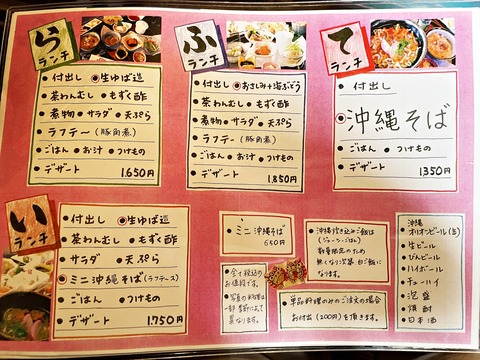 ら
ランチ
● 付出し ◉生ゆば造
● 茶わんむし ● もずく酢
● 煮物 ● サラダ ● 天ぷら
● ラフテー (豚角煮)
● ごはん ● お汁 ● つけもの
● デザート 1,650円
ふ
ランチ
● 付出し ◉おさしみ+海ぶどう
● 茶わんむし ● もずく酢
● 煮物 ● サラダ ● 天ぷら
● ラフテー (豚角煮)
● ごはん ● お汁 ● つけもの
● デザート 1,850円
て
ランチ
● 付出し
◉沖縄そば
● ごはん ● つけもの
● デザート 1350円
い
ランチ
● 付出し ◉生ゆば造
● 茶わんむし ● もずく酢
● サラダ ● 天ぷら
◉ミニ沖縄そば(ラフテー入)
● ごはん ● つけもの
● デザート 1,750円
● ミニ沖縄そば
650円
● 全て税込の
お値段です。
● 写真のお料理は
一部 季節によって
異なります。
● 沖縄炊き込みご飯は
(ジューシーごはん)
数量限定のため
無くなり次第 白ご飯に
なります。
● 単品料理のみのご注文の場合
お付出(200円)を頂きます。
● 沖縄
オリオンビール(生)
● 生ビール
● びんビール
● ハイボール
● チューハイ
● 泡盛
● 焼酎
● 日本酒